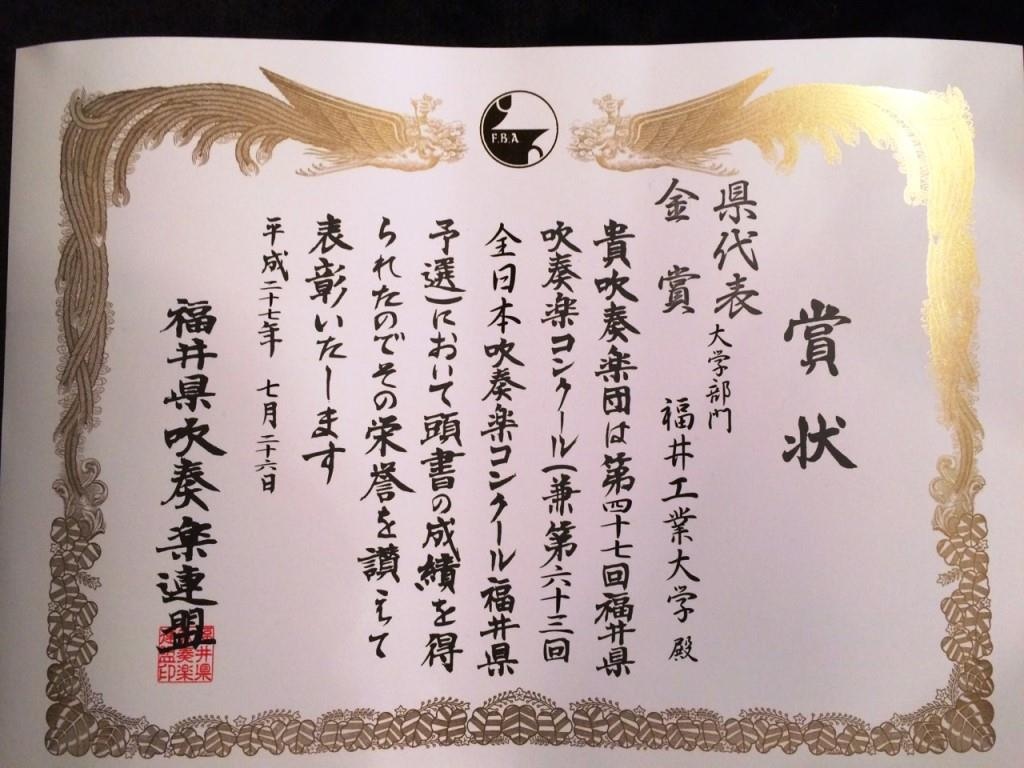 F.B.A
賞状
県代表
大学部門
金賞
福井工業大学 殿
貴吹奏楽団は第四十七回福井県
吹奏楽コンクール(兼第六十三回
全日本吹奏楽コンクール福井県
予選)において頭書の成績を得
られたのでその栄誉を讃えて
表彰いたします
平成二十七年 七月二十六日
福井県吹奏楽連盟